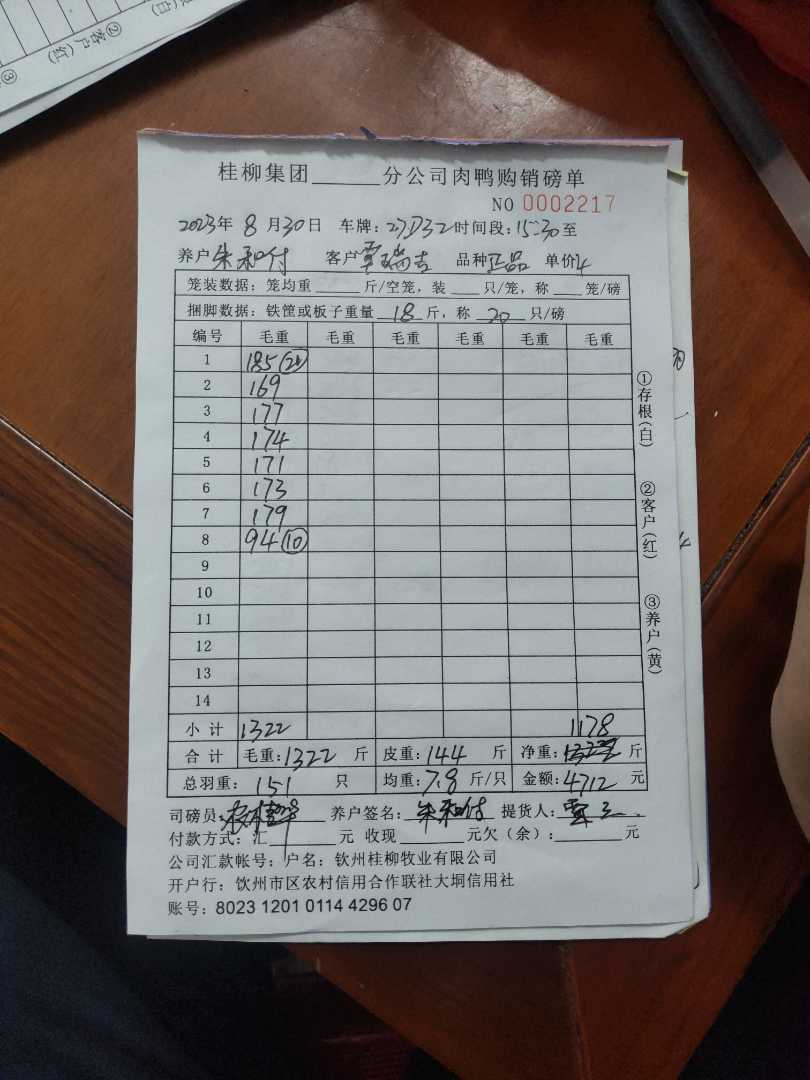 ② 客户(红)
③
桂柳集团______分公司肉鸭购销磅单
NO 0002217
2023年 8 月 30 日 车牌: 时间段: 15:30 至
养户 朱和付 客户 覃瑞吉 品种 正品 单价 4
笼装数据: 笼均重 ____ 斤/空笼, 装 ___ 只/笼, 称 ___ 笼/磅
捆脚数据: 铁筐或板子重量 18 斤, 称 20 只/磅
编号 毛重 毛重 毛重 毛重 毛重 毛重
1 185
2 169
3 177
4 174
5 171
6 173
7 179
8 94 ⑩
9
10
11
12
13
14
小 计 1322 1178
合 计 毛重: 1322 斤 皮重: 144 斤 净重: 斤
总羽重: 151 只 均重: 7.8 斤/只 金额: 4712 元
司磅员: 养户签名: 朱和付 提货人:
付款方式: 汇______元 收现______元欠(余): ______元
公司汇款帐号: 户名: 钦州桂柳牧业有限公司
开户行: 钦州市区农村信用合作联社大垌信用社
账号: 8023 1201 0114 4296 07
①存根(白)
②客户(红)
③养户(黄)